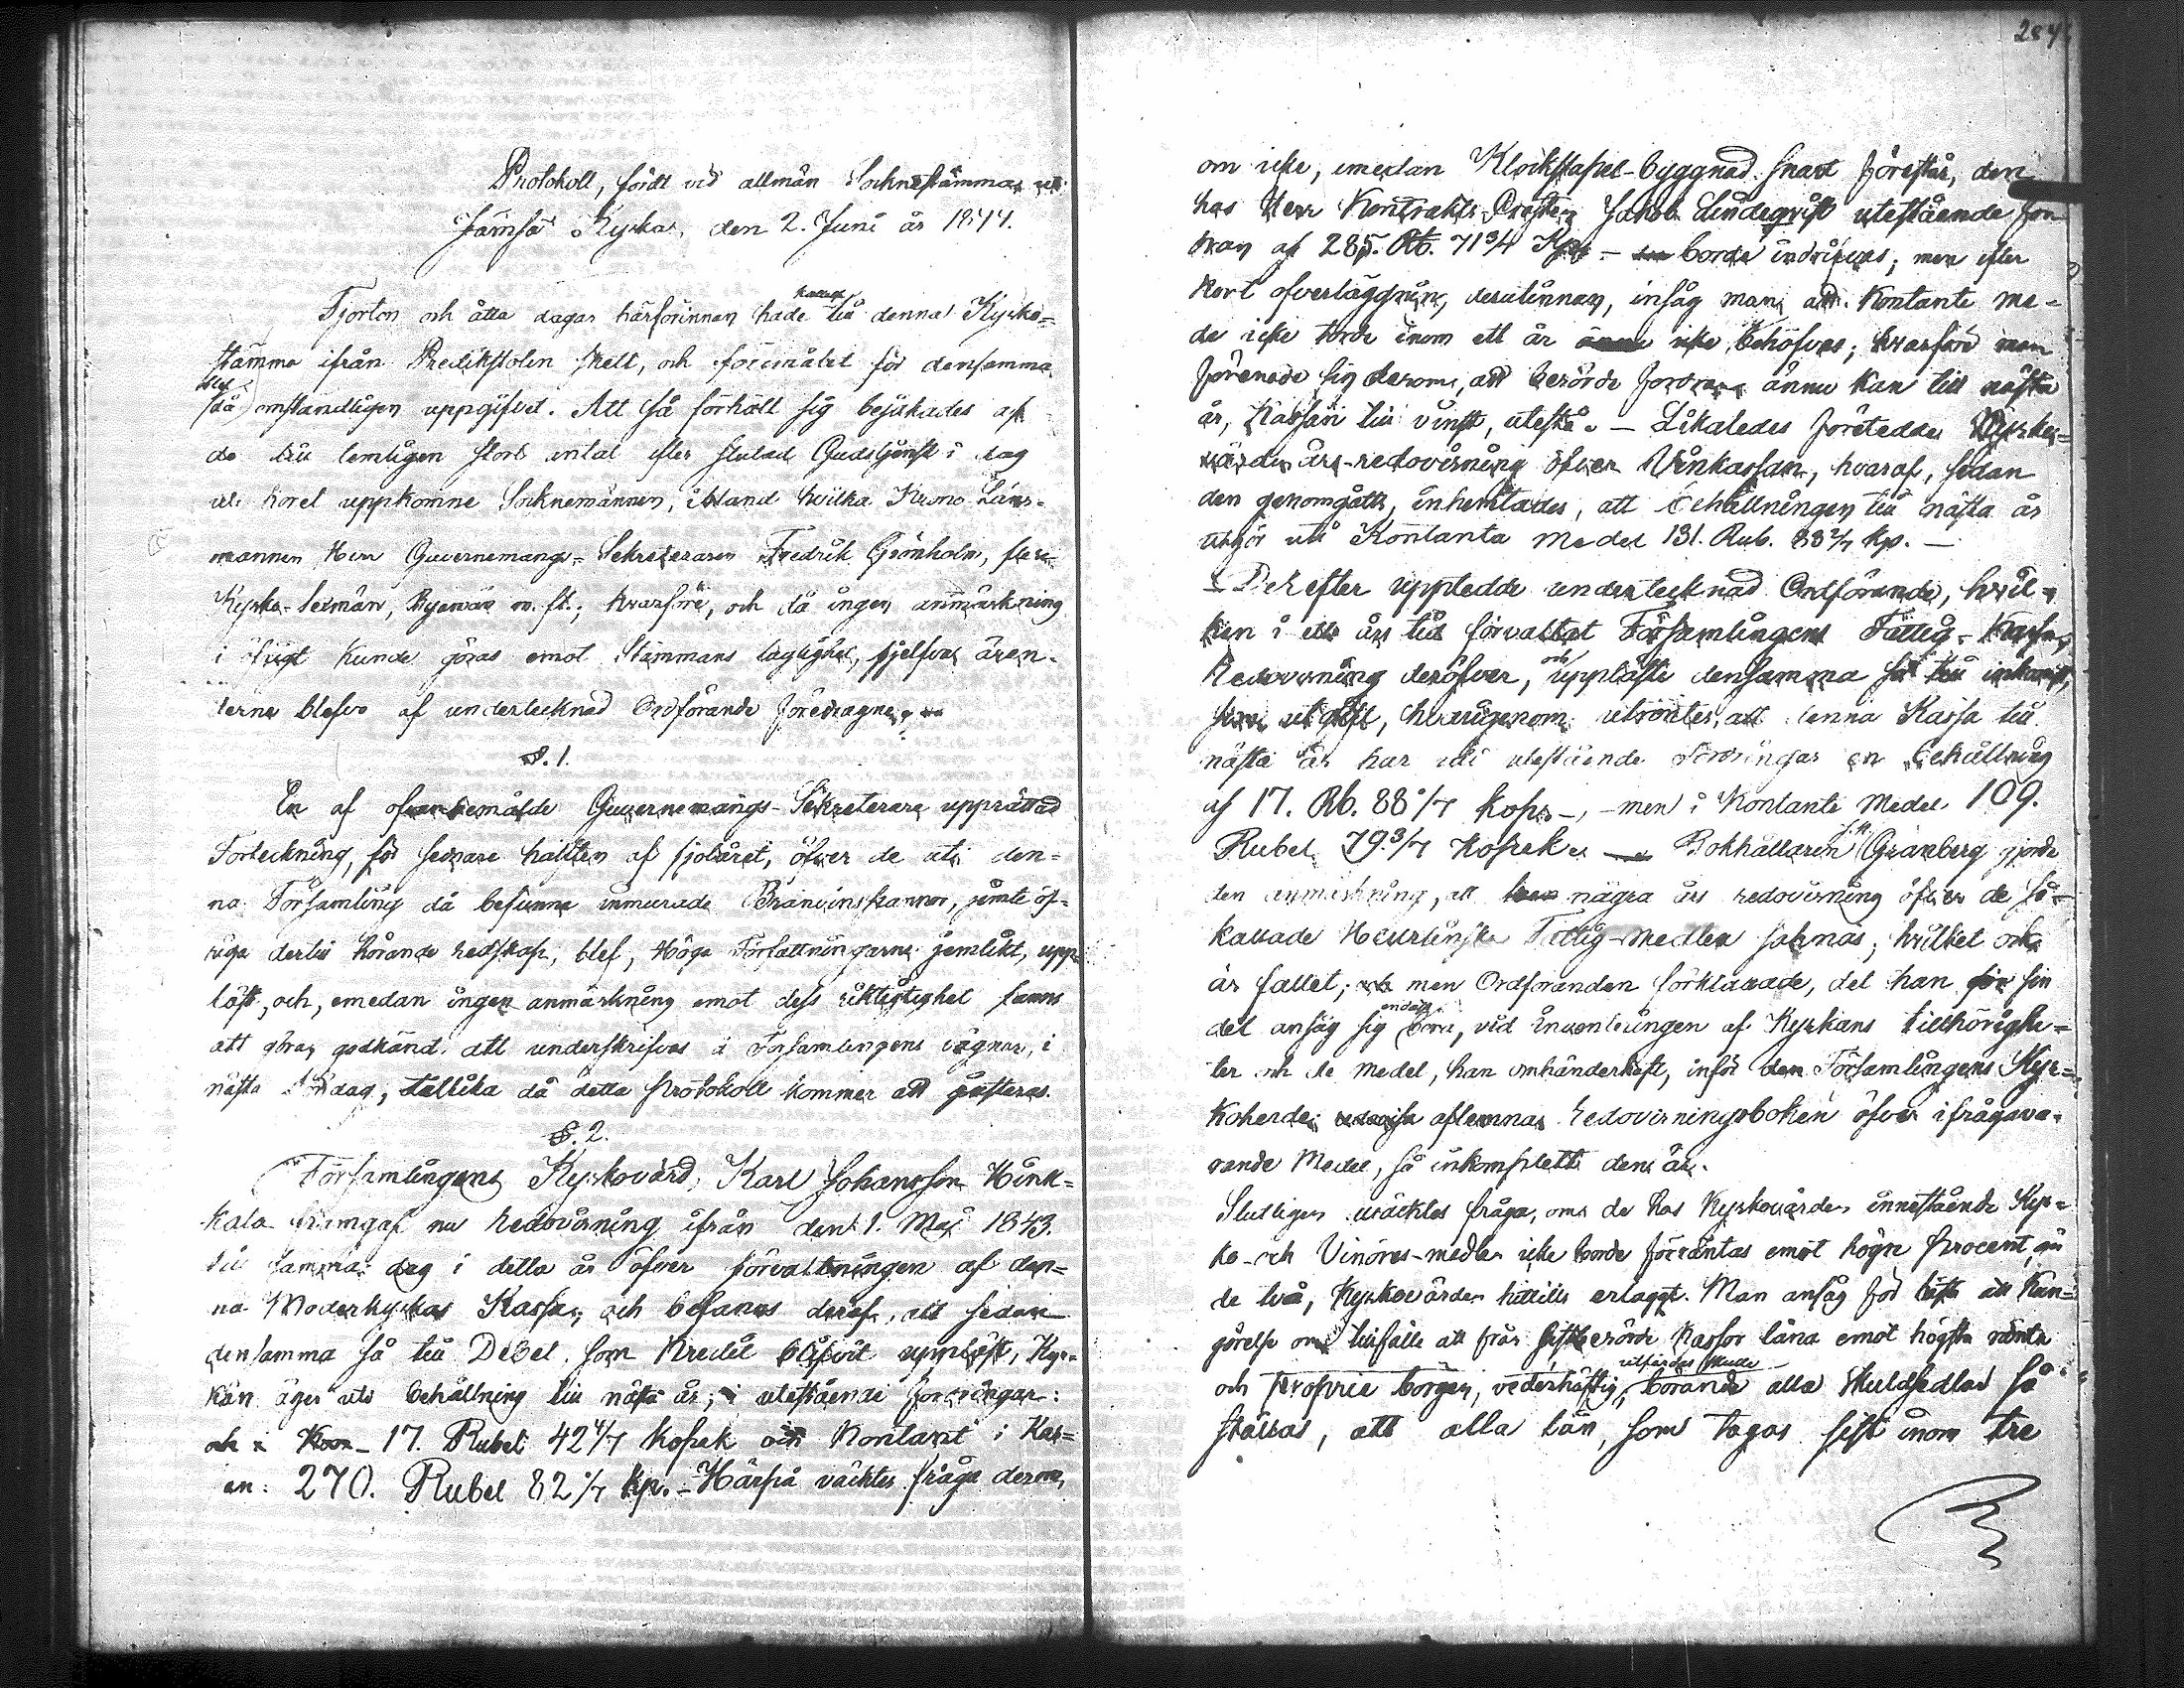 Protokoll, fördt vid allmän Sockenstämma uti
Jämsä Kyrka, den 2. Juni år 1844.
Fjorton och åtta dagar härförinnan hade kallelse till denna Kyrko=
stämma ifrån Predikstolen skett, och föremålet för densamma
blef då omständligen uppgifvet. Att så förhöll sig bejakades af
de till temligen stort antal efter slutad Gudstjenst i dag
uti koret uppkomne Socknemännen, ibland hvilka Krono Läns=
mannen Herr Guvernements=Sekreteraren Fredrik Grönholm, flere
Kyrko-Sexmän, Byemän m. fl.; hvarföre, och då ingen anmärkning
i öfrigt kunde göras emot Stämmans laglighet, sjelfva ären=
derne blefvo af undertecknad Ordförande föredragne,
§. 1.
En af ofvanbemälde Guvernements-Sekreterare upprättad
Förteckning, för sednare hälften af fjolåret, öfver de uti den=
na Församling då befunne inmurade Brännvinspannor, jämte öf=
riga dertill hörande redskap, blef, Höga Författningarne jemlikt, upp=
läst, och, emedan ingen anmärkning emot dess riktighet fanns
att göras, godkänd att underskrifvas å Församlingens vägnar, i
nästa Söndag, tillika då detta protokoll kommer att justeras.
§. 2.
Församlingens Kyrkovärd, Karl Johansson Hink=
kala framgaf nu redovisning ifrån den 1. Maj 1843.
till samma dag i detta år öfver förvaltningen af den=
na Moderkyrkas Kassa, och befanns deraf, att sedan
densamma så till Debet som Kredit blifvit uppläst, Kyr=
kan äger uti behållning till nästa år, i utestående fordringar:
17. Rubel 42 4/7 kopek och Kontant i Kas=
an: 270. Rubel 82 /7 kp. – Härpå väcktes fråga derom,
284
om icke, emedan Klockstapel-byggnad snart förestår, den
hos Herr Kontrakts-Prosten Jakob Lindeqvist utestående for
dran af 285. Rb. 71 3/4 Kp. – borde indrifvas; men efter
kort öfverläggning, derutinnan, insåg man, att Kontante me=
de icke torde inom ett år icke behöfvas; hvarföre man
förenade sig derom, att berörde fordran ännu kan till nästa
år, Kassan till vinst, utestå. – Likaledes företedde Kyrko=
värden års-redovisning öfver Vinkassan, hvaraf, sedan
den genomgåtts, inhemtades, att behållningen till nästa år
utgör uti Kontanta medel 131. Rub. 88 2/7 kp. –
Derefter upptedde undertecknad Ordförande, hvil=
ken i ett års tid förvaltat Församlingens Fattig-Kassa,
Redovisning deröfver, och uppläste densamma så till inkomst,
som utgift, hvarigenom utröntes, att denna Kassa till
nästa år har uti utestående fordringar en behållning
af 17. Rb. 88 /7 kop. –, men i Kontante medel 109.
Rubel 79 3/7 Kopek. – Bokhållaren Granberg gjorde
den anmärkning, att några års redovisning öfver de så
kallade Heurlinska Fattig-medlen saknas; hvilket ock
är fallet; men Ordföranden förklarade, det han för sin
del ansåg sig endast böra, vid inventeringen af Kyrkans tillhörighe=
ter och de medel, han omhänderhaft, inför Församlingens Kyr=
koherde aflemna redovisningsboken öfver ifrågava=
rande Medel, så inkomplett den är.
Slutligen väcktes fråga, om de hos Kyrkovärden innestående Kyr=
ko- och Vinöres-medlen icke borde förräntas emot högre procent, än
de två, Kyrkovärden hittills erlaggt. Man ansåg för bäst att Kun=
görelse om tillfälle att från sistberörde kassor låna emot högsta ränta
och proprie borgen, vederhäftig, utfärdas skulle börande alla skuldsedlar så
ställas, att alla lån, som tagas sist inom tre